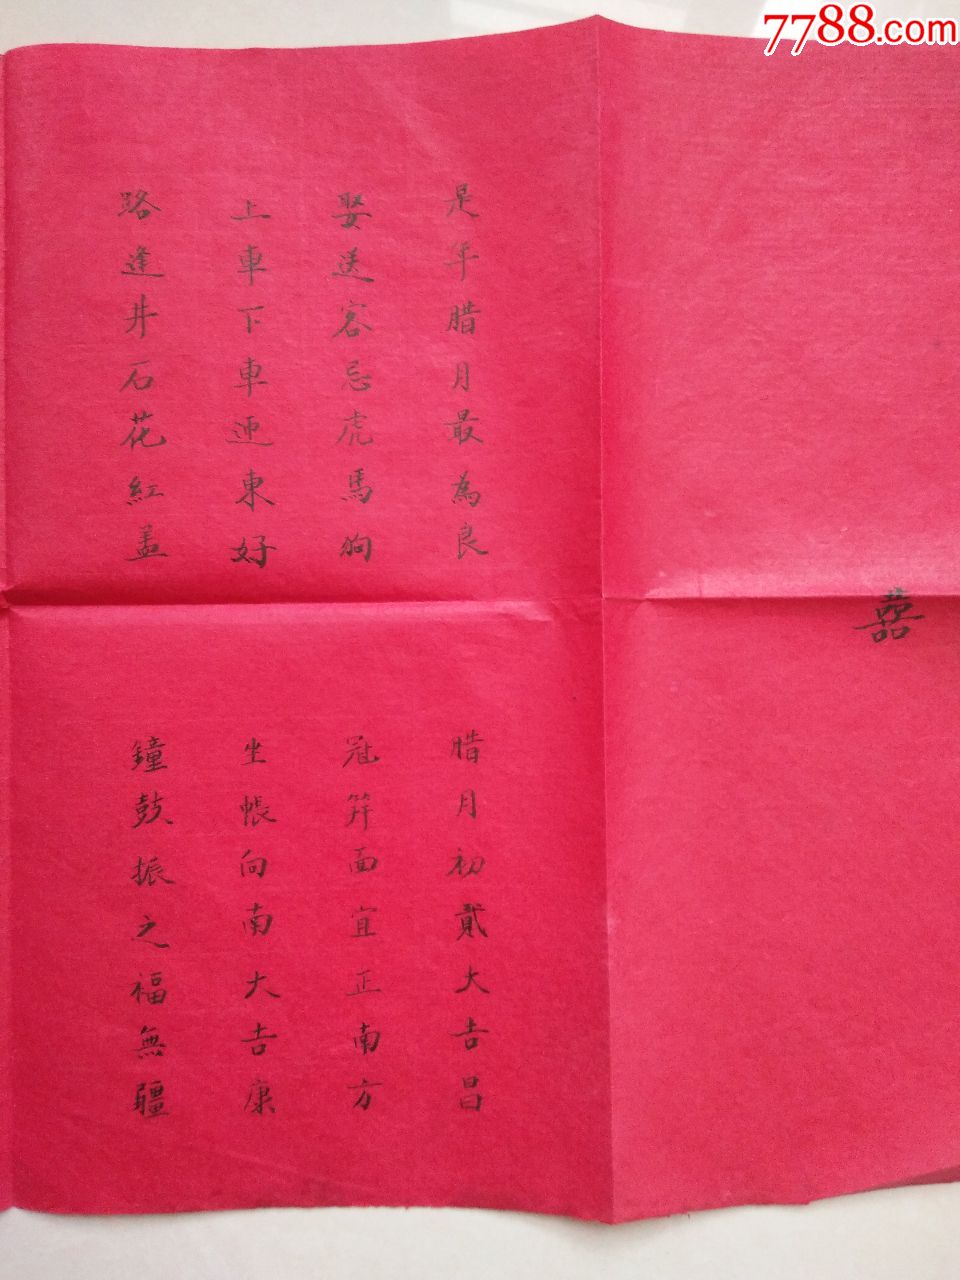 7788.com
囍
是年腊月最為良
腊月初貳大吉昌
娶送客忌虎馬狗
冠笄面宜正南方
上車下車迎東好
坐帳向南大吉康
路逢井石花紅盖
鐘鼓振之福無疆